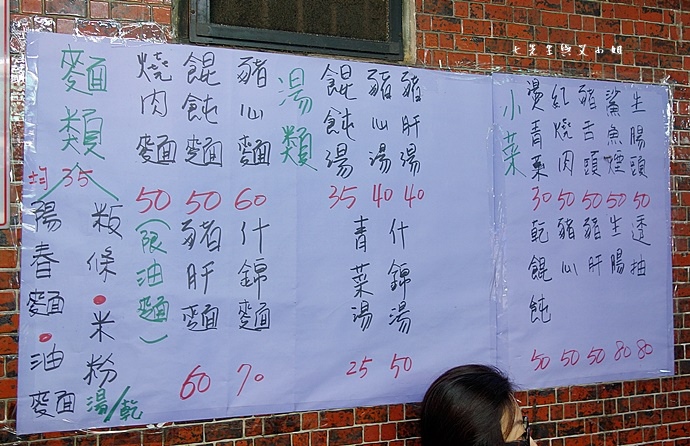 七先生與艾小姐
麵類
均35
陽春麵
油麵
粄條
米粉
湯/乾
燒肉麵
50
(限油麵)
餛飩麵
50
豬肝麵
60
豬心麵
60
什錦麵
70
湯類
餛飩湯
35
豬心湯
40
豬肝湯
40
青菜湯
25
什錦湯
50
小菜
燙青菜
30
紅燒肉
50
豬舌頭
50
鯊魚煙
50
生腸頭
50
乾餛飩
50
豬心
50
豬肝
50
生腸
80
透抽
80